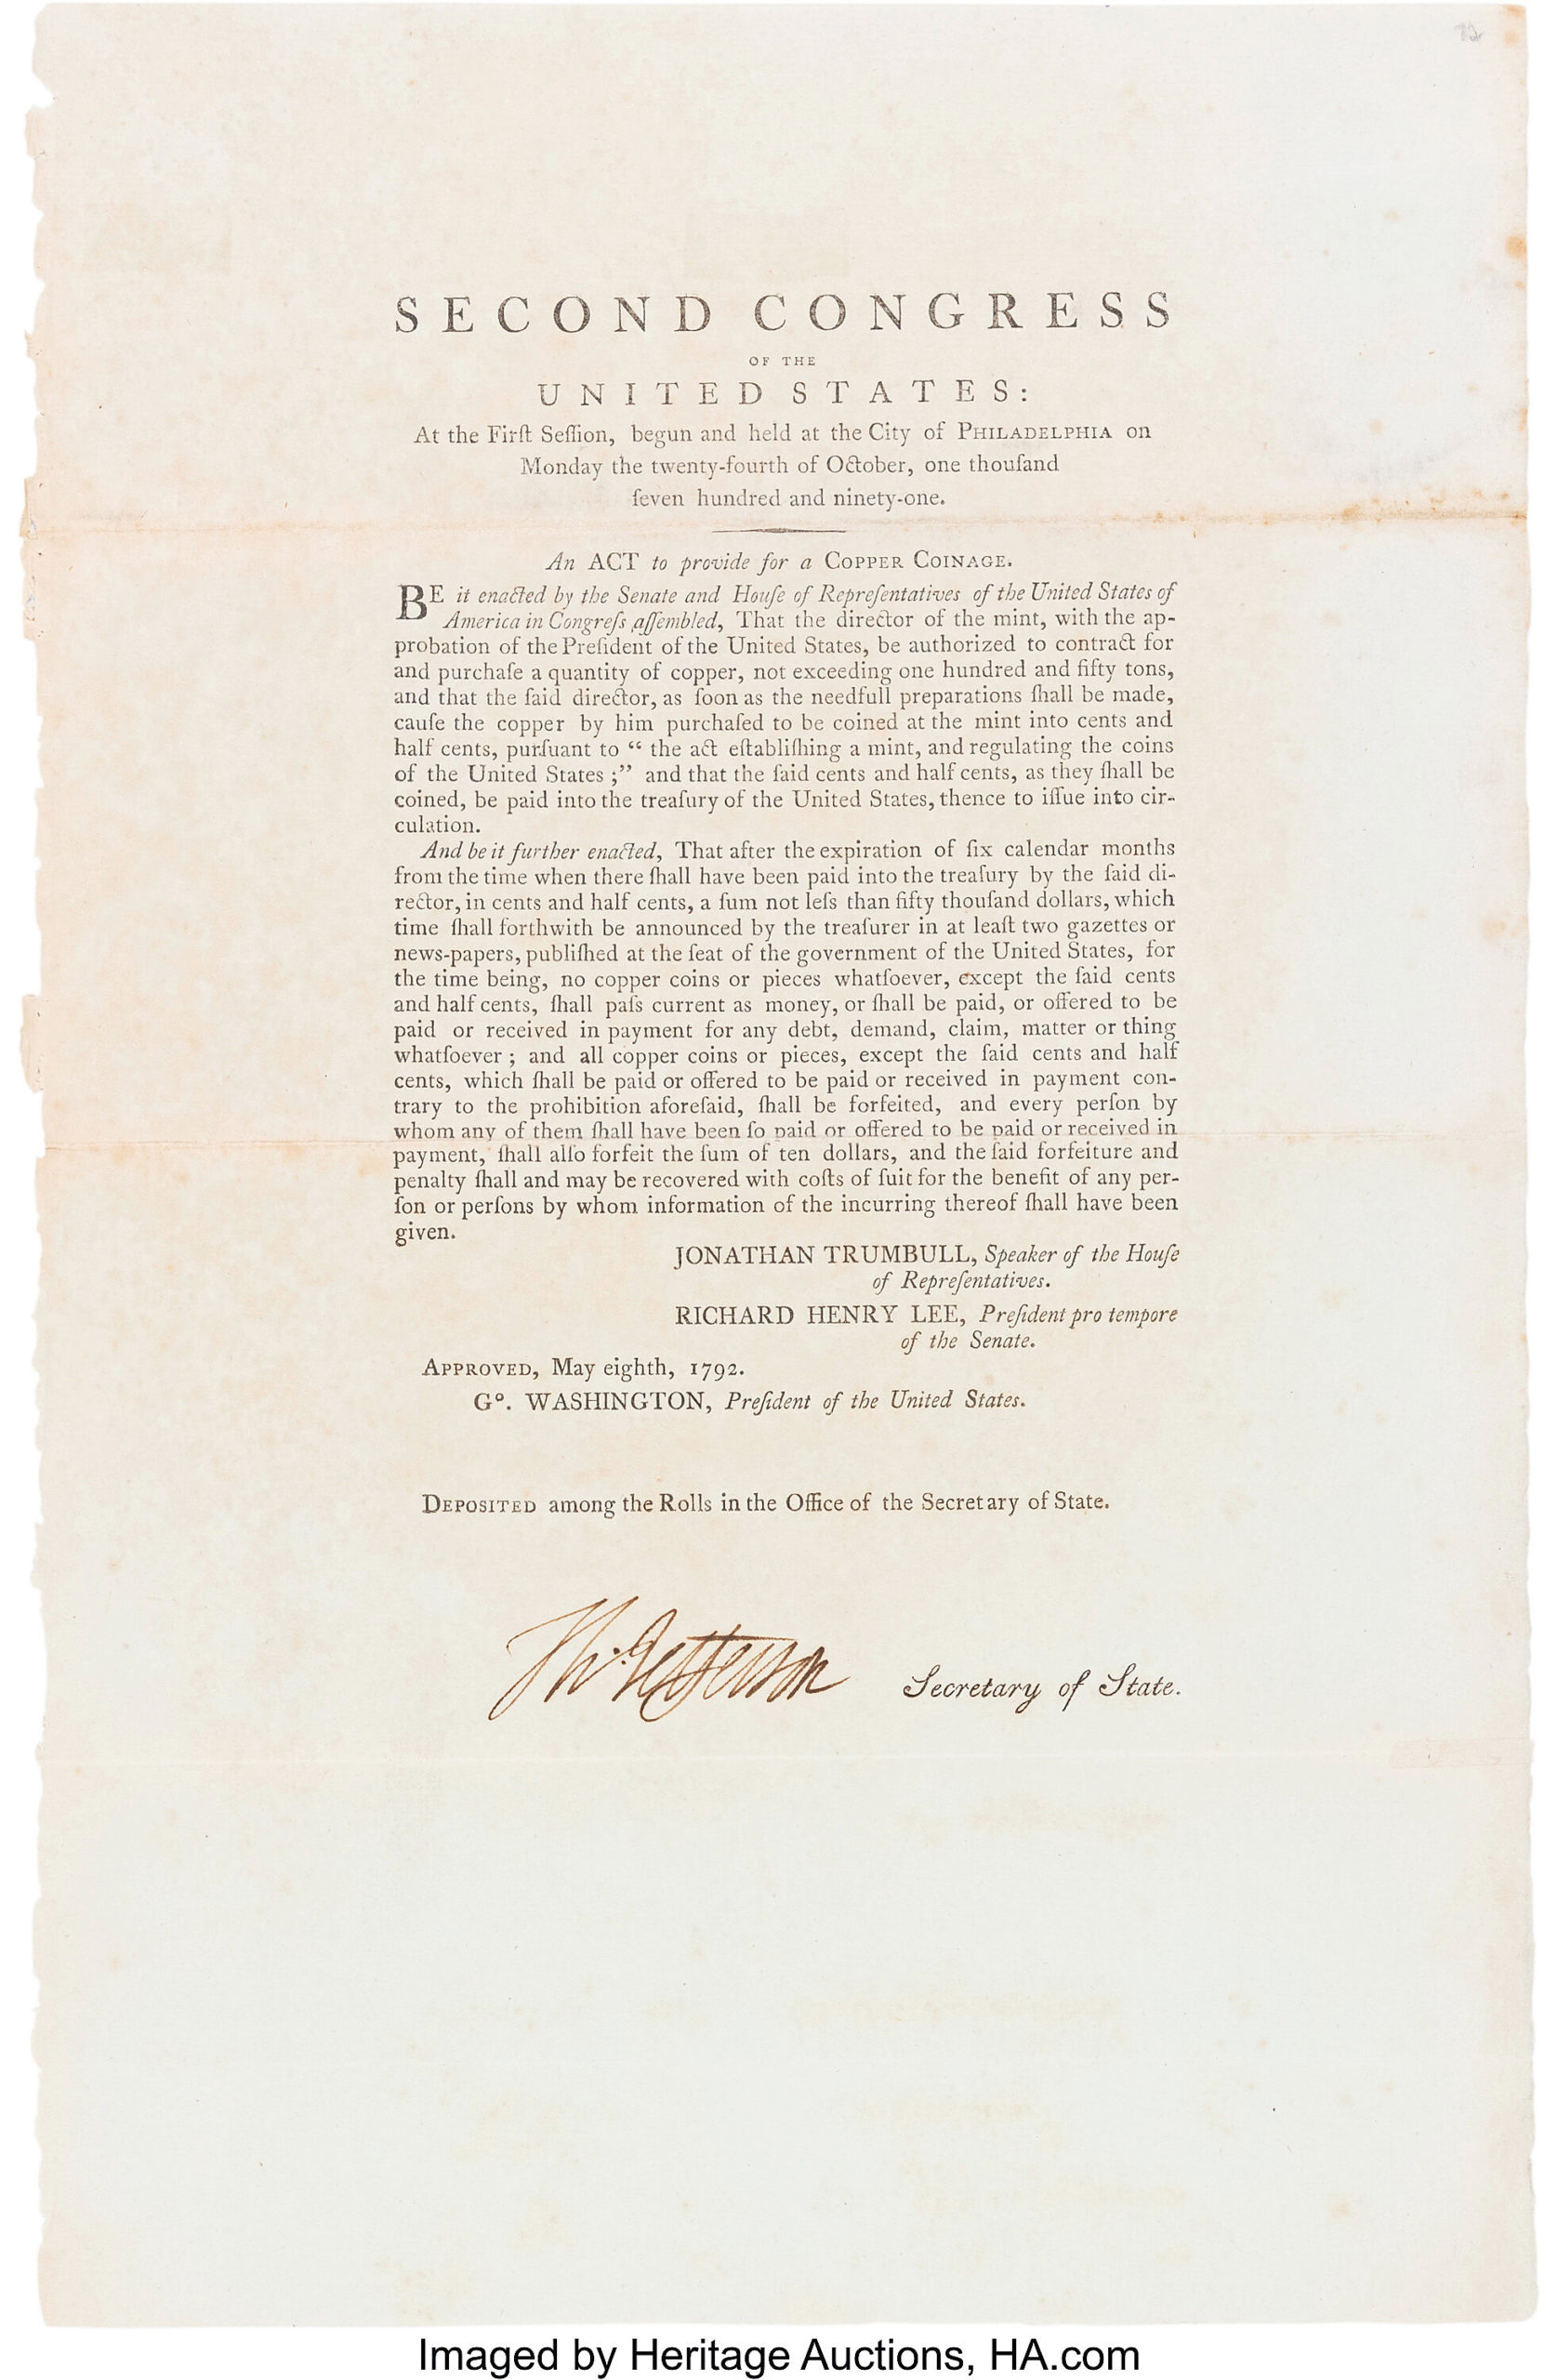 72
SECOND CONGRESS
OF THE
UNITED STATES:
At the Firſt Seſſion, begun and held at the City of PHILADELPHIA on
Monday the twenty-fourth of October, one thouſand
ſeven hundred and ninety-one.
An ACT to provide for a COPPER COINAGE.
BE it enacted by the Senate and Houſe of Repreſentatives of the United States of
America in Congreſs aſſembled, That the director of the mint, with the ap-
probation of the Preſident of the United States, be authorized to contract for
and purchaſe a quantity of copper, not exceeding one hundred and fifty tons,
and that the ſaid director, as ſoon as the needfull preparations ſhall be made,
cauſe the copper by him purchaſed to be coined at the mint into cents and
half cents, purſuant to “ the act eſtabliſhing a mint, and regulating the coins
of the United States ;” and that the ſaid cents and half cents, as they ſhall be
coined, be paid into the treaſury of the United States, thence to iſſue into cir-
culation.
And be it further enacted, That after the expiration of ſix calendar months
from the time when there ſhall have been paid into the treaſury by the ſaid di-
rector, in cents and half cents, a ſum not leſs than fifty thouſand dollars, which
time ſhall forthwith be announced by the treaſurer in at leaſt two gazettes or
news-papers, publiſhed at the ſeat of the government of the United States, for
the time being, no copper coins or pieces whatſoever, except the ſaid cents
and half cents, ſhall paſs current as money, or ſhall be paid, or offered to be
paid or received in payment for any debt, demand, claim, matter or thing
whatſoever ; and all copper coins or pieces, except the ſaid cents and half
cents, which ſhall be paid or offered to be paid or received in payment con-
trary to the prohibition aforeſaid, ſhall be forfeited, and every perſon by
whom any of them ſhall have been ſo paid or offered to be paid or received in
payment, ſhall alſo forfeit the ſum of ten dollars, and the ſaid forfeiture and
penalty ſhall and may be recovered with coſts of ſuit for the benefit of any per-
ſon or perſons by whom information of the incurring thereof ſhall have been
given.
JONATHAN TRUMBULL, Speaker of the Houſe
of Repreſentatives.
RICHARD HENRY LEE, Preſident pro tempore
of the Senate.
APPROVED, May eighth, 1792.
Gº. WASHINGTON, Preſident of the United States.
DEPOSITED among the Rolls in the Office of the Secretary of State.
Th: Jefferson Secretary of State.
Imaged by Heritage Auctions, HA.com